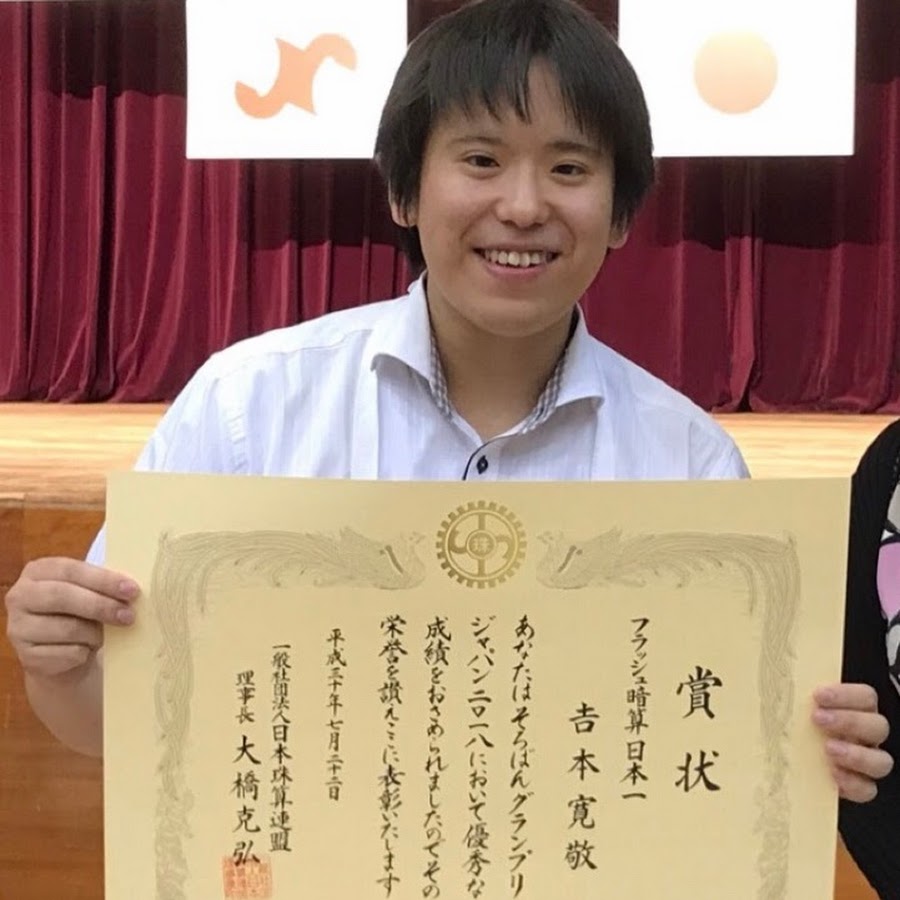 賞状
フラッシュ暗算日本一
𠮷本寛敬
あなたはそろばんグランプリ
ジャパン二〇一八において優秀な
成績をおさめられましたのでその
栄誉を讃えここに表彰いたします
平成三十年七月二十二日
一般社団法人日本珠算連盟
理事長 大橋克弘
珠